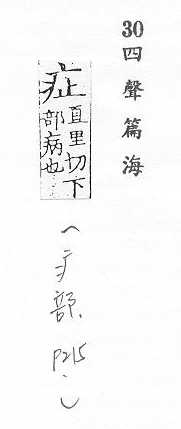 30
四聲篇海
症
直里切下
部病也
(疒部, P215.)